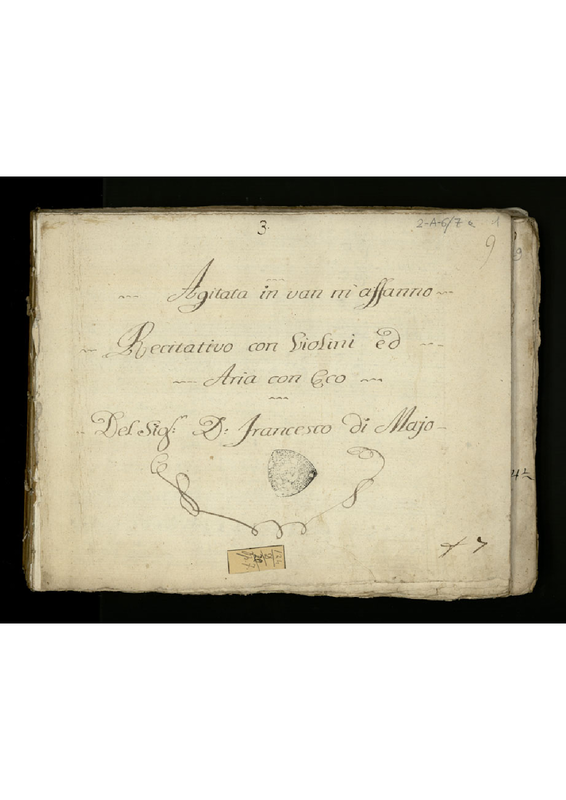 3.
2-A-6/7 a
9
Agitata in van m'affanno
Recitativo con Violini ed
Aria con Eco
Del Sig.r D: Francesco di Majo
7